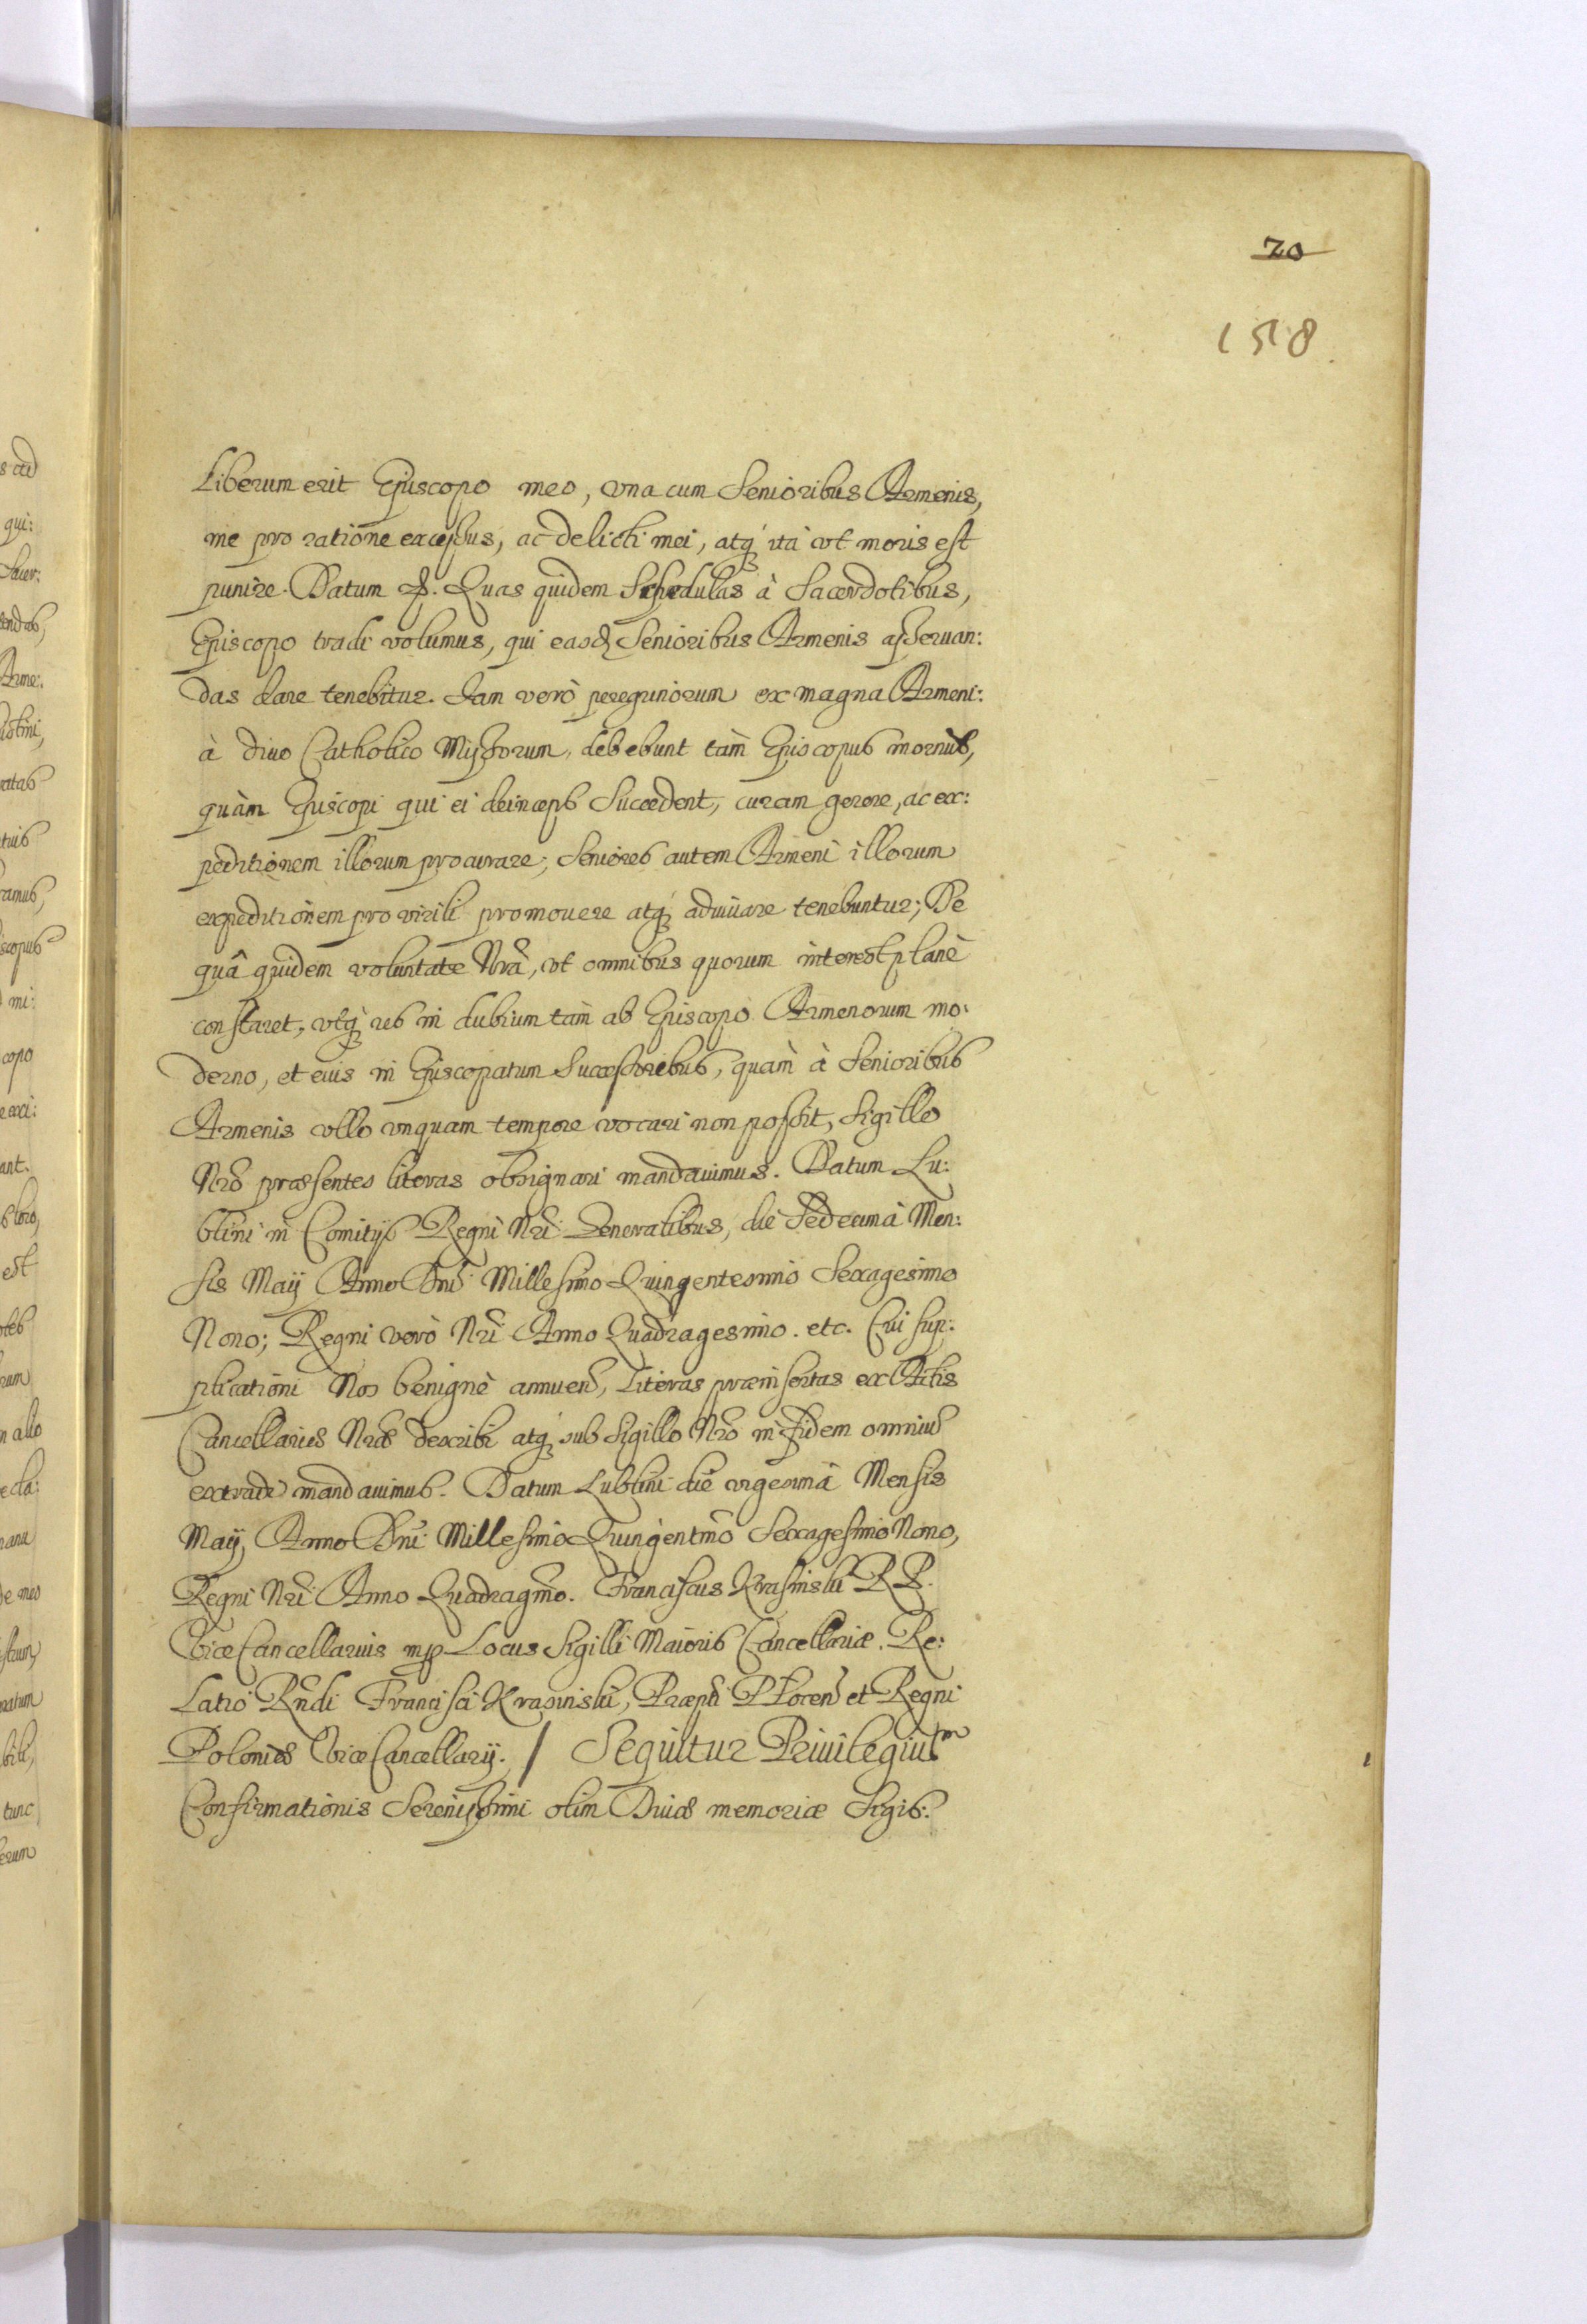 20
158
Liberum erit Episcopo meo, vna cum Senioribus Armenis,
me pro ratione excessus, ac delicti mei, atq; ita vt moris est
punire. Datum &. Quas quidem Schedulas à Sacerdotibus,
Episcopo tradi volumus, qui easdē Senioribus Armenis asseruan:
das dare tenebitur. Iam verò peregrinorum ex magna Armeni:
à diuo Catholico Missorum, debebunt tàm Episcopus mornus,
quàm Episcopi qui ei deinceps Succedent, curam gerere, ac ex:
peditionem illorum procurare, Seniores autem Armeni illorum
expeditionem pro virili promouere atq; adiuuare tenebuntur; De
quâ quidem voluntate Nrã, vt omnibus quorum interest planè
constaret, vtq; res in dubium tàm ab Episcopo Armenorum mo:
derno, et eius in Episcopatum Successoribus, quàm à Senioribus
Armenis vllo vnquam tempore vocari non possit, Sigillo
Nrõ præsentes literas obsignari mandauimus. Datum Lu:
blini in Comitijs Regni Nri Generalibus, die Sedecimà Men:
sis Maij Anno Dni Millesimo Quingentesimo Sexagesimo
Nono; Regni verò Nri Anno Quadragesimo. etc. Cui sup:
plicationi Nos benignè annuen̄, Literas præinsertas ex Actis
Cancellariæ Nræ describi atq; sub Sigillo Nrõ in fidem omniũ
extradi mandauimus. Datum Lublini die vigesimâ Mensis
Maij, Anno Dni Millesimo Quingentmõ Sexagesimo Nono,
Regni Nri Anno Quadragmõ. Franciscus Krasinski R. P.
ViceCancellarius mp Locus Sigilli Maioris Cancellariæ. Re:
Latio Rndi Francisci Krasinski, Præpti Plocen̄ et Regni
Poloniæ ViceCancellarij. / Sequitur Priuilegiũm
Confirmationis Serenissimi olim Diuæ memoriæ Sigis: